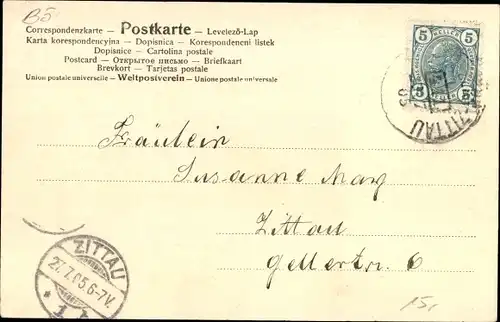 B5
Correspondenzkarte — Postkarte — Levelező-Lap
Karta korespondencyjna — Dopisnica — Korespondeni listek
Dopisnice — Cartolina postale
Postcard — Открытое письмо — Briefkaart
Brevkort — Tarjetas postale
Union postale universelle — Weltpostverein — Unione postale universale
5 5
HELLER HELLER
5 5
ZITTAU
Fräulein
Susanne May
Zittau
Gellertstr. 6
ZITTAU
27.7.05.6-7V.
15,-